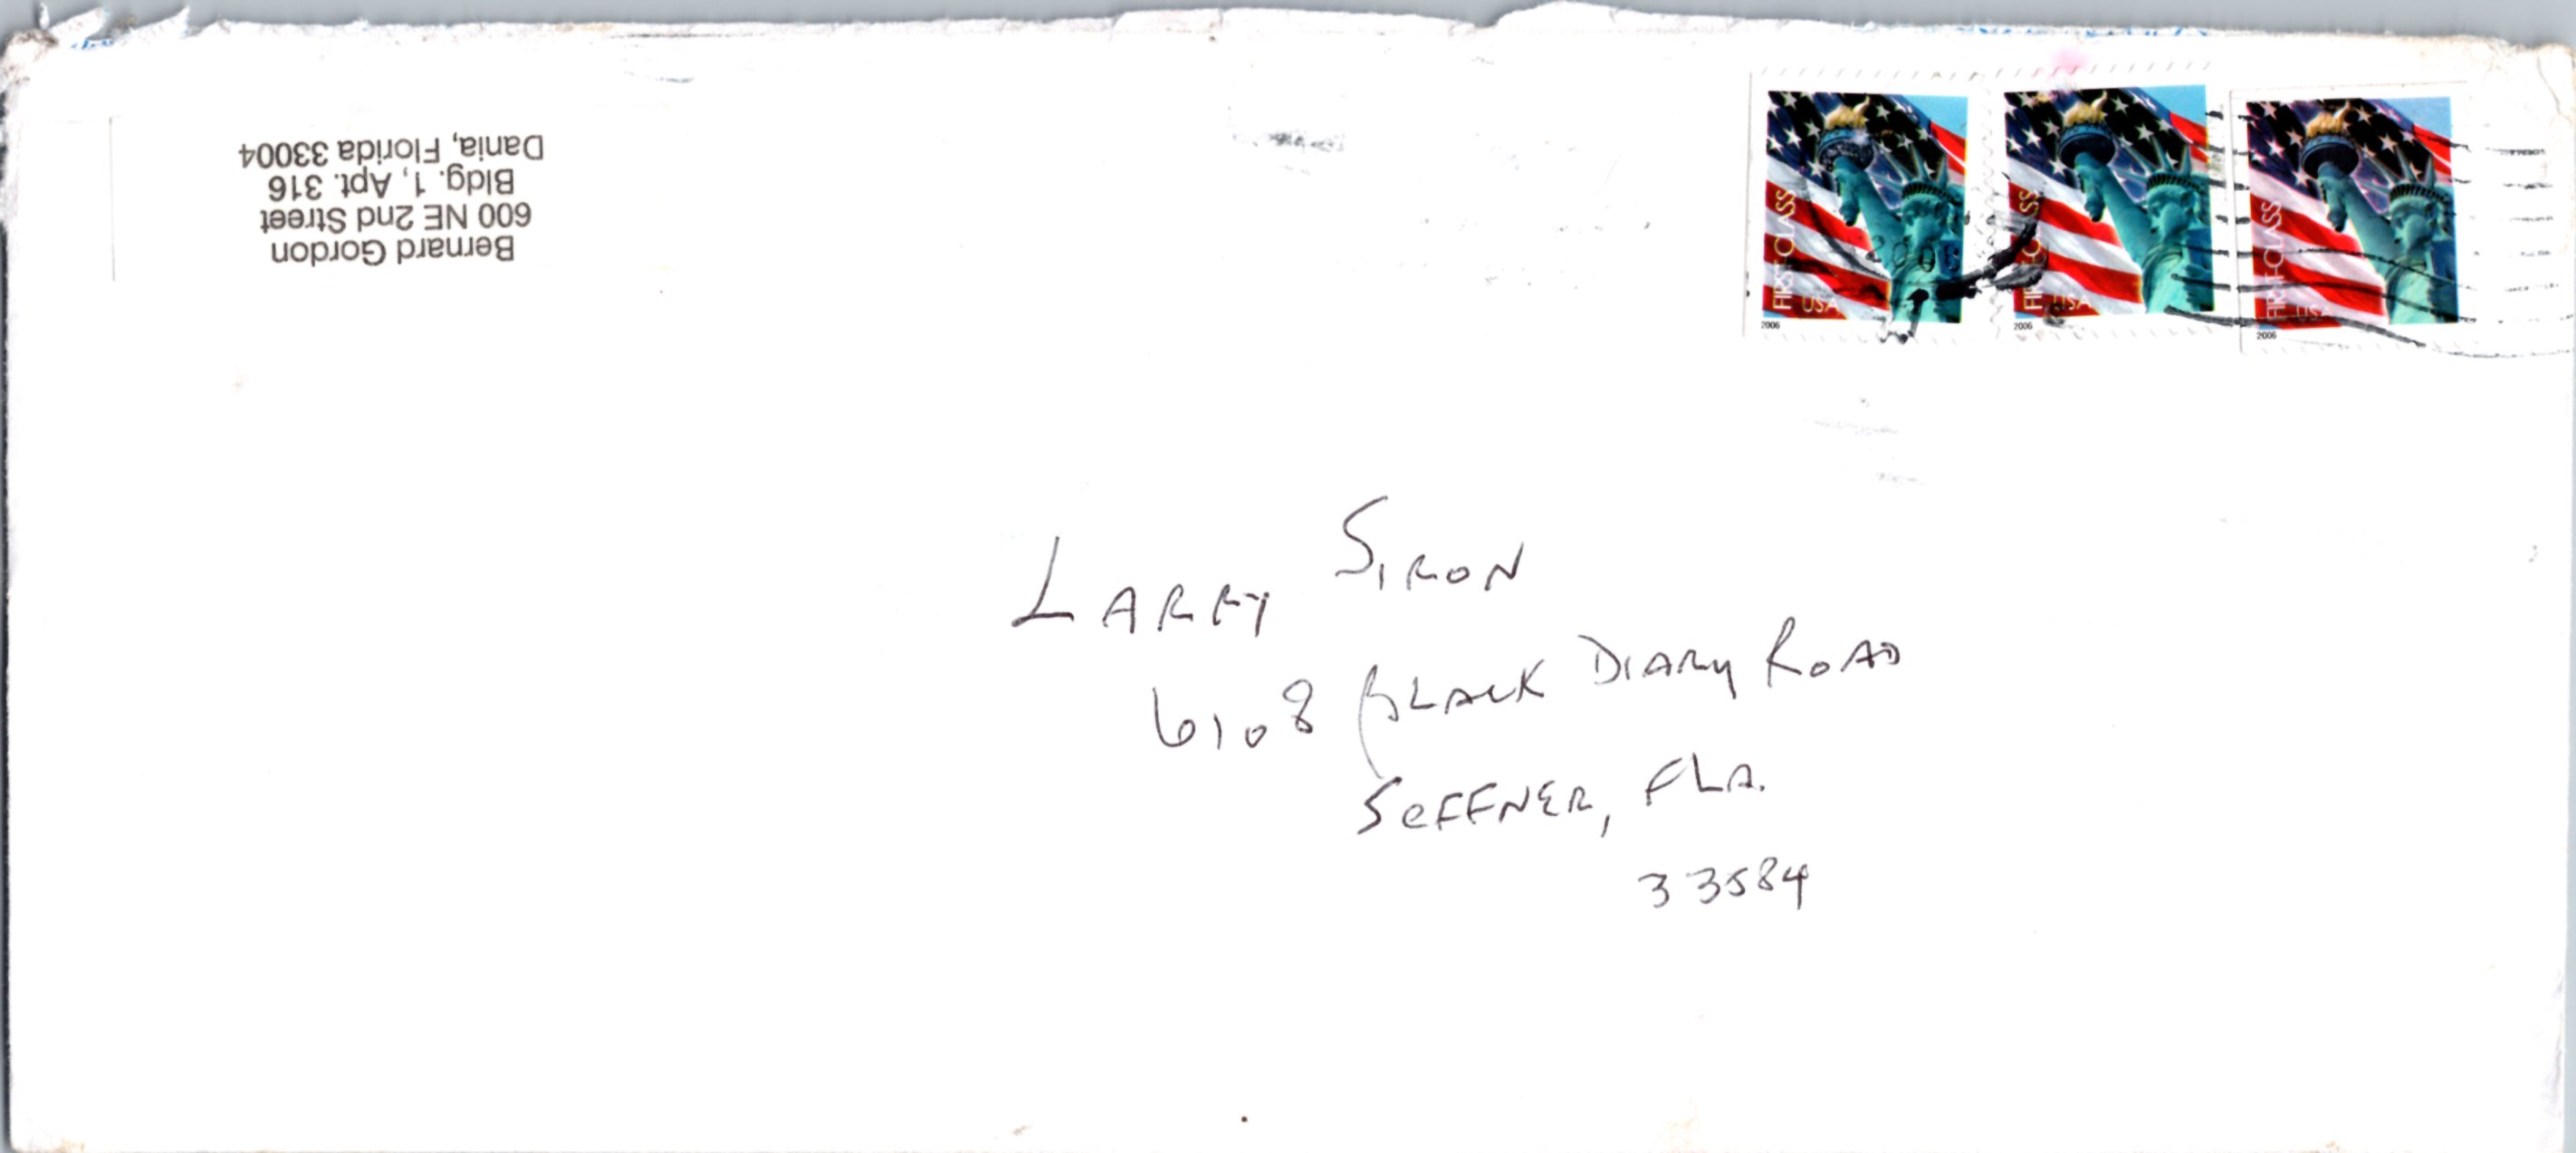 Bernard Gordon
600 NE 2nd Street
Bldg. 1, Apt. 316
Dania, Florida 33004
FIRST-CLASS
USA
2006
FIRST-CLASS
USA
2006
FIRST-CLASS
USA
2006
LARRY SIRON
6108 BLACK DIARY ROAD
SEFFNER, FLA.
33584